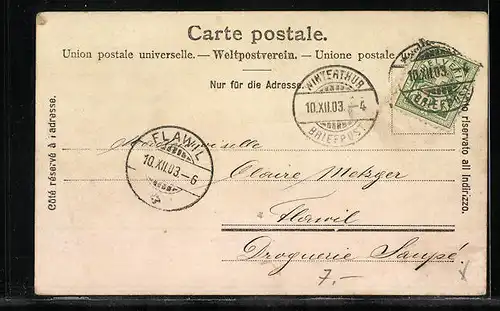 Carte postale.
Union postale universelle. — Weltpostverein. — Unione postale
Nur für die Adresse.
Côté réservé à l'adresse.
riservato all'Indirizzo.
WINTERTHUR
10.XII.03. - 4
BRIEFPOST
10.XII.03 4
BRIEFPOST
FLAWIL
10.XII.03 - 6
Mademoiselle
Claire Metzger
Flawil
Droguerie Saupé.
7.-